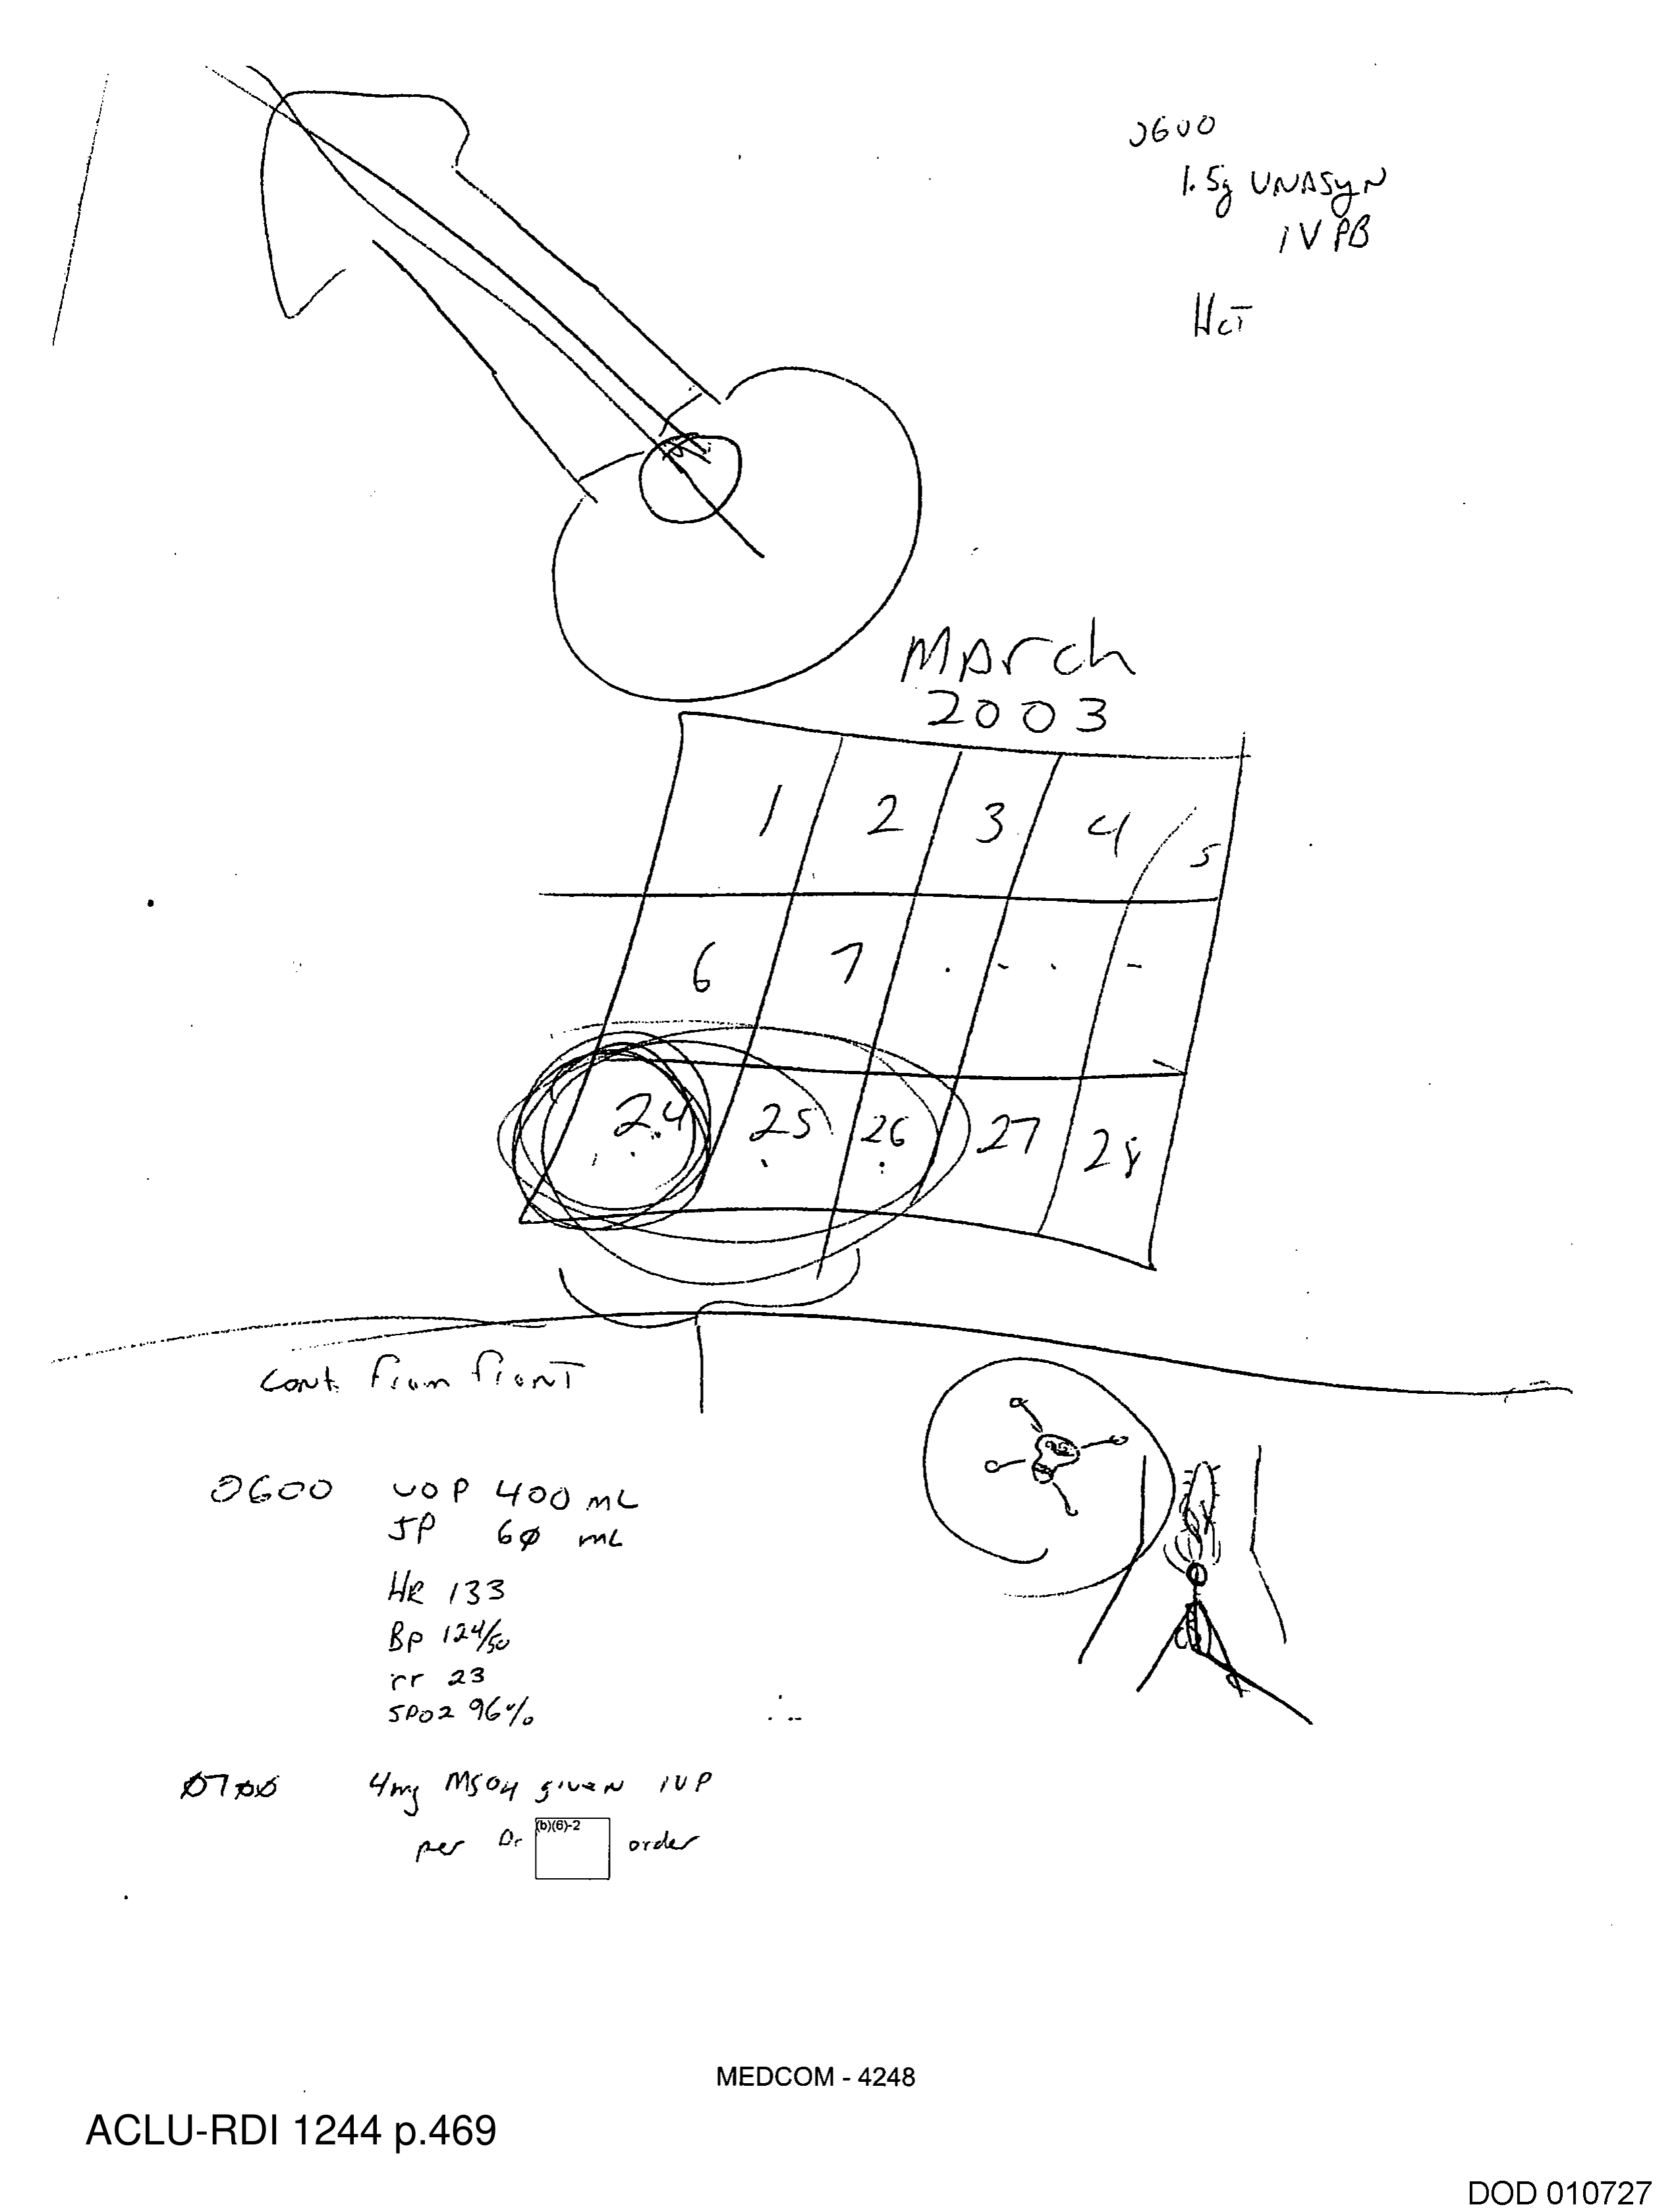 0600
1.5g UNASyN
IV PB
HcT
March
2003
1 2 3 4 5
6 7 . - . -
24 25 26 27 28
cont. From fronT
0600 UOP 400 mL
JP 60 mL
HR 133
BP 124/50
rr 23
SPO2 96%
0700 4mg MSO4 given IVP
per Dr (b)(6)-2 order
MEDCOM - 4248
ACLU-RDI 1244 p.469
DOD 010727